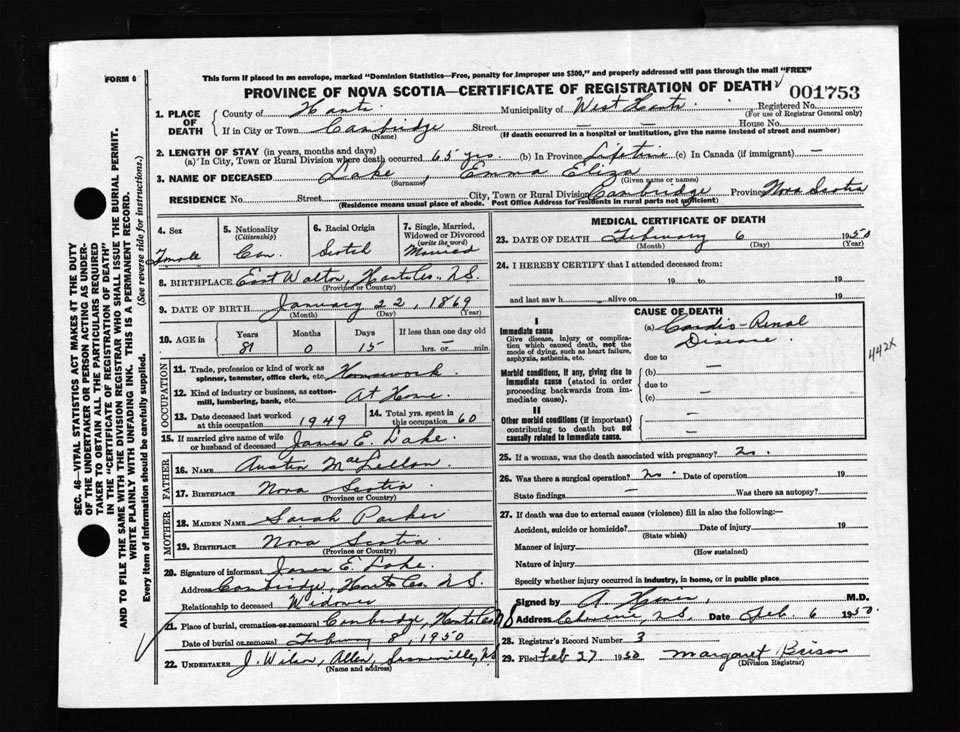 This form if placed in an envelope, marked "Dominion Statistics—Free, penalty for improper use $300," and properly addressed will pass through the mail "FREE"
FORM 6
PROVINCE OF NOVA SCOTIA—CERTIFICATE OF REGISTRATION OF DEATH 001753
1. PLACE OF DEATH County of Hants Municipality of West Hants Registered No.
(For use of Registrar General only)
If in City or Town Cambridge Street — House No. —
(Name) (If death occurred in a hospital or institution, give the name instead of street and number)
2. LENGTH OF STAY (in years, months and days)
(a) In City, Town or Rural Division where death occurred 65 yrs (b) In Province Lifetime (c) In Canada (if immigrant) —
3. NAME OF DECEASED Lake, Emma Eliza
(Surname) (Given name or names)
RESIDENCE No. Street City, Town or Rural Division Cambridge Province Nova Scotia
(Residence means usual place of abode. Post Office Address for residents in rural parts not sufficient)
4. Sex Female
5. Nationality (Citizenship) Can.
6. Racial Origin Scotch
7. Single, Married, Widowed or Divorced (write the word) Married
8. BIRTHPLACE East Walton, Hants Co., N.S.
(Province or Country)
9. DATE OF BIRTH January 22, 1869
(Month) (Day) (Year)
10. AGE in Years Months Days If less than one day old
81 0 15 hrs. or — min.
OCCUPATION
11. Trade, profession or kind of work as spinner, teamster, office clerk, etc. Housework
12. Kind of industry or business, as cotton-mill, lumbering, bank, etc. At Home
13. Date deceased last worked at this occupation 1949
14. Total yrs. spent in this occupation 60
15. If married give name of wife or husband of deceased James E. Lake.
FATHER
16. NAME Austin MacLellan.
17. BIRTHPLACE Nova Scotia
(Province or Country)
MOTHER
18. MAIDEN NAME Sarah Parker
19. BIRTHPLACE Nova Scotia
(Province or Country)
20. Signature of informant James E. Lake.
Address Cambridge, Hants Co. N.S.
Relationship to deceased Widower
21. Place of burial, cremation or removal Cambridge, Hants Co. N.S
Date of burial or removal February 8, 1950
22. UNDERTAKER J. Wilson Allen, Summerville, N.S
(Name and address)
MEDICAL CERTIFICATE OF DEATH
23. DATE OF DEATH February 6 1950
(Month) (Day) (Year)
24. I HEREBY CERTIFY that I attended deceased from:
19 to 19
and last saw h alive on 19
CAUSE OF DEATH
I
Immediate cause
Give disease, injury or complication which caused death, not the mode of dying, such as heart failure, asphyxia, asthenia, etc.
(a) Cardio-Renal Disease.
due to —
Morbid conditions, if any, giving rise to immediate cause (stated in order proceeding backwards from immediate cause).
(b) —
due to —
(c) —
II
Other morbid conditions (if important) contributing to death but not causally related to immediate cause.
—
—
442X
25. If a woman, was the death associated with pregnancy? No.
26. Was there a surgical operation? No. Date of operation 19
State findings — Was there an autopsy?
27. If death was due to external causes (violence) fill in also the following:—
Accident, suicide or homicide? Date of injury 19
(State which)
Manner of injury
(How sustained)
Nature of injury
Specify whether injury occurred in industry, in home, or in public place
Signed by M.D.
Address N.S. Date Feb. 6 1950.
28. Registrar's Record Number 3
29. Filed Feb 27 1950 Margaret Brison
(Division Registrar)
SEC. 46—VITAL STATISTICS ACT MAKES IT THE DUTY
OF THE UNDERTAKER OR PERSON ACTING AS UNDERTAKER TO OBTAIN ALL THE PARTICULARS REQUIRED
IN THE "CERTIFICATE OF REGISTRATION OF DEATH"
AND TO FILE THE SAME WITH THE DIVISION REGISTRAR WHO SHALL ISSUE THE BURIAL PERMIT.
WRITE PLAINLY WITH UNFADING INK. THIS IS A PERMANENT RECORD.
Every item of Information should be carefully supplied. (See reverse side for instructions.)